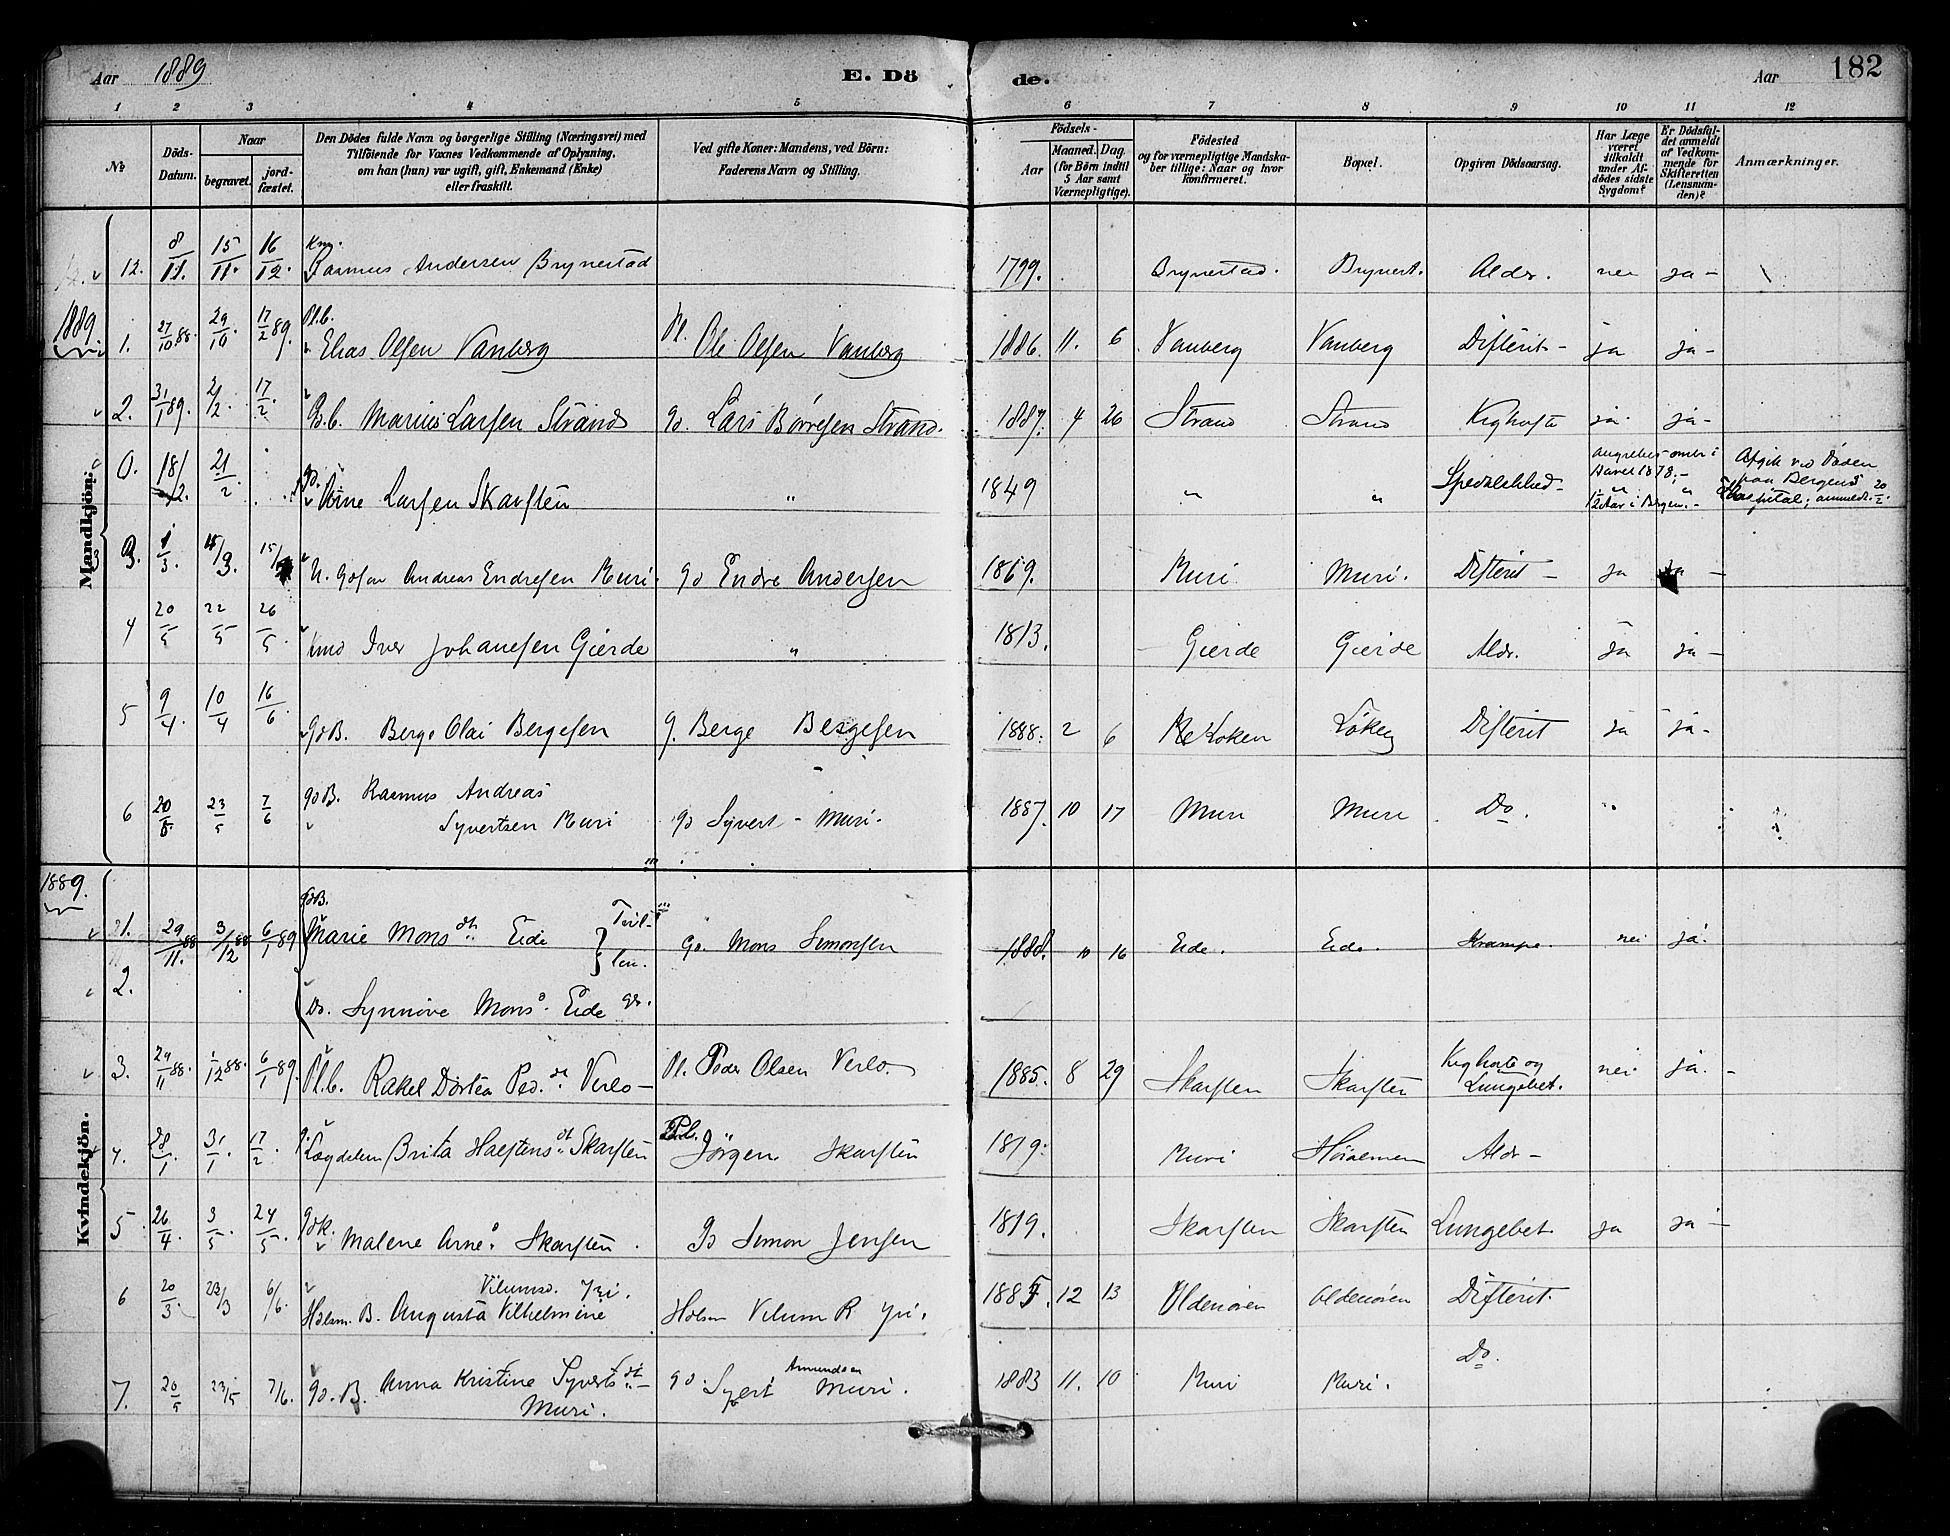 Aar 1889 E. Döde. Aar 182
1 2 3 4 5 6 7 8 9 10 11 12
No
Döds-Datum.
Naar
begravet.
jordfæstet.
Den Dödes fulde Navn og borgerlige Stilling (Næringsvei) med
Tilföiende for Voxnes Vedkommende af Oplysning,
om han (hun) var ugift, gift, Enkemand (Enke)
eller fraskilt.
Ved gifte Koner: Mandens, ved Börn:
Faderens Navn og Stilling.
Födsels-
Aar
Maaned. Dag.
(for Börn indtil
5 Aar samt
Værnepligtige).
Födested
og for værnepligtige Mandska-
ber tillige: Naar og hvor
konfirmeret.
Bopæl.
Opgiven Dödsaarsag.
Har Læge
været
tilkaldt
under Af-
dödes sidste
Sygdom?
Er Dödsfal-
det anmeldt
af Vedkom-
mende for
Skifteretten
(Lensman-
den)?
Anmærkninger.
Mandkjön.
12. 8/11. 15/11. 16/12. Rasmus Andersen Brynestad 1799. Brynestad. Brynest. Aldr. nei ja -
1889
1. 27/10 88. 29/10. 17/2 89. Pl.b. Elias Olsen Vanberg Pl. Ole Olsen Vanberg 1886. 11. 6 Vanberg Vanberg Difterit - ja ja -
2. 31/1 89. 2/2. 17/2. G.b. Marius Larsen Strand Gd. Lars Börresen Strand. 1887. 4 26 Strand Strand Kighoste ja ja -
0. 18/2. 21/2 Arne Larsen Skarsten " 1849 " " Spedalskhed - Aaret 1878; - Afgik ved Døden
paa Bergens
Hospital; anmeldt 20/2.
1/2 Aar i Bergen. -
3. 1/3. 15/3. U. Gdsøn Andreas Endresen Muri. Gd Endre Andersen 1869. Muri Muri. Difterit - ja ja -
4 20/5 22/5 26/5. Kmd Iver Johanesen Gierde " 1813. Gierde Gierde Aldr. ja ja -
5 9/4. 10/4 16/6. GdB. Berge Olai Bergesen G. Berge Bergesen 1888. 2 6 Løken Difterit ja ja -
6 20/5. 23/5 7/6 GdB. Rasmus Andreas
Syvertsen Muri Gd Syvert - Muri. 1887. 10 17 Muri Muri Do.
1889.
Kvindekjön.
1. 29/11. 88 3/12 88 6/1 89 GdB. Marie Monsdt. Eide Tvil- Gd. Mons Simonsen 1888. 10 16 Eide. Eide. Krampe. nei ja.
2. Do. Synnöve Mons. Eide
3. 29/11 88. 1/12 88. 6/1 89. Pl.b. Rakel Dortea Ped. dt. Verlo - Pl. Peder Olsen Verlo 1885. 8 29 Skarsten Skarsten Kighoste og
Lungebet. nei ja. -
4. 28/1 31/1. 17/2. Lægdslem Brita Halstensdt. Skarsten Jörgen Skarsten 1819. Muri Aldr -
5. 26/4. 3/5. 24/5. Gdk. Malene Arne. Skarsten. Gd Simon Jensen 1819. Skarsten Skarsten Lungebet. ja ja -
6 20/3. 23/3 6/6. Vilumsd. Yri.
Holsm. B. Augusta Vilhelmine Holsm Vilum R Yri. 1885. 12 13 Oldenören Oldenören Difterit.
7. 20/5 23/5 7/6. Gd. B. Anna Kristine Syvertsdt.
Muri. Gd. Syvert Amundsen Muri. 1883 11. 10 Muri Muri. Do.